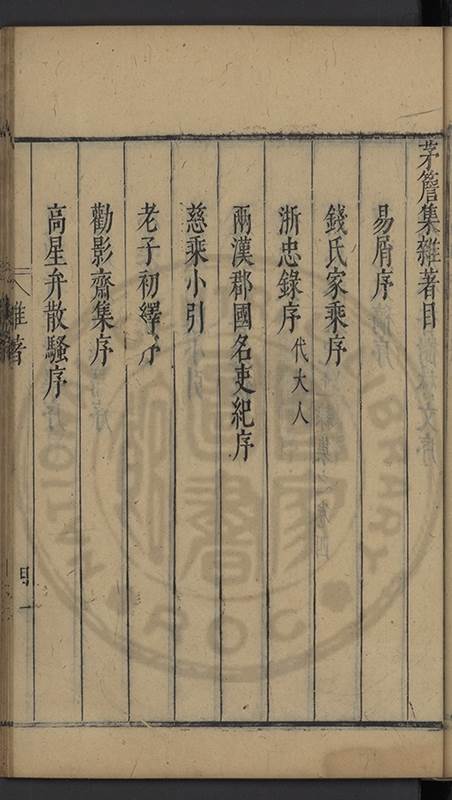 茅簷集雜著目
易屑序
錢氏家乘序
浙忠錄序代大人
兩漢郡國名吏紀序
慈乘小引
老子初繹序
勸影齋集序
高星弁散騷序
雜著
目一